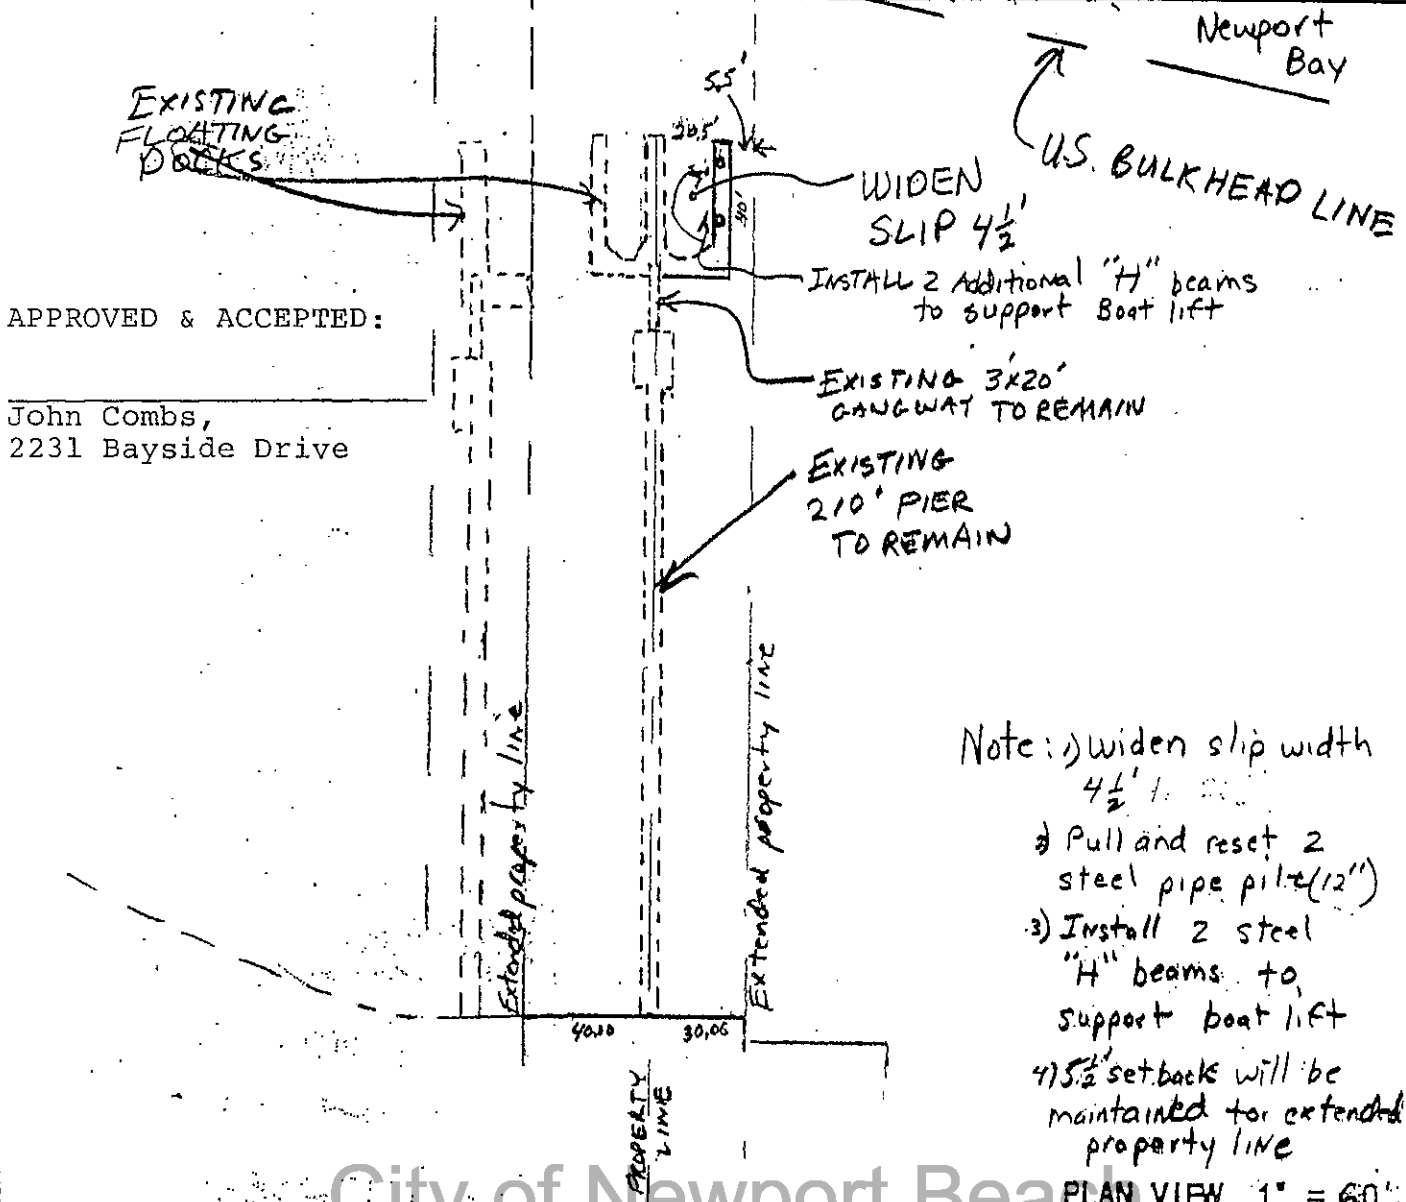 Newport
Bay
EXISTING
FLOATING
DOCKS
5.5'
20.5'
40'
U.S. BULKHEAD LINE
WIDEN
SLIP 4½'
INSTALL 2 Additional "H" beams
to support Boat lift
APPROVED & ACCEPTED:
John Combs,
2231 Bayside Drive
EXISTING 3'x20'
GANGWAY TO REMAIN
EXISTING
210' PIER
TO REMAIN
Extended property line
Extended property line
Note: 1) widen slip width
4½'
2) Pull and reset 2
steel pipe pile (12")
3) Install 2 steel
"H" beams to
support boat lift
4) 5½' setback will be
maintained for extended
property line
40.10
30.06
PROPERTY
LINE
City of Newport Beach
PLAN VIEW 1" = 60'